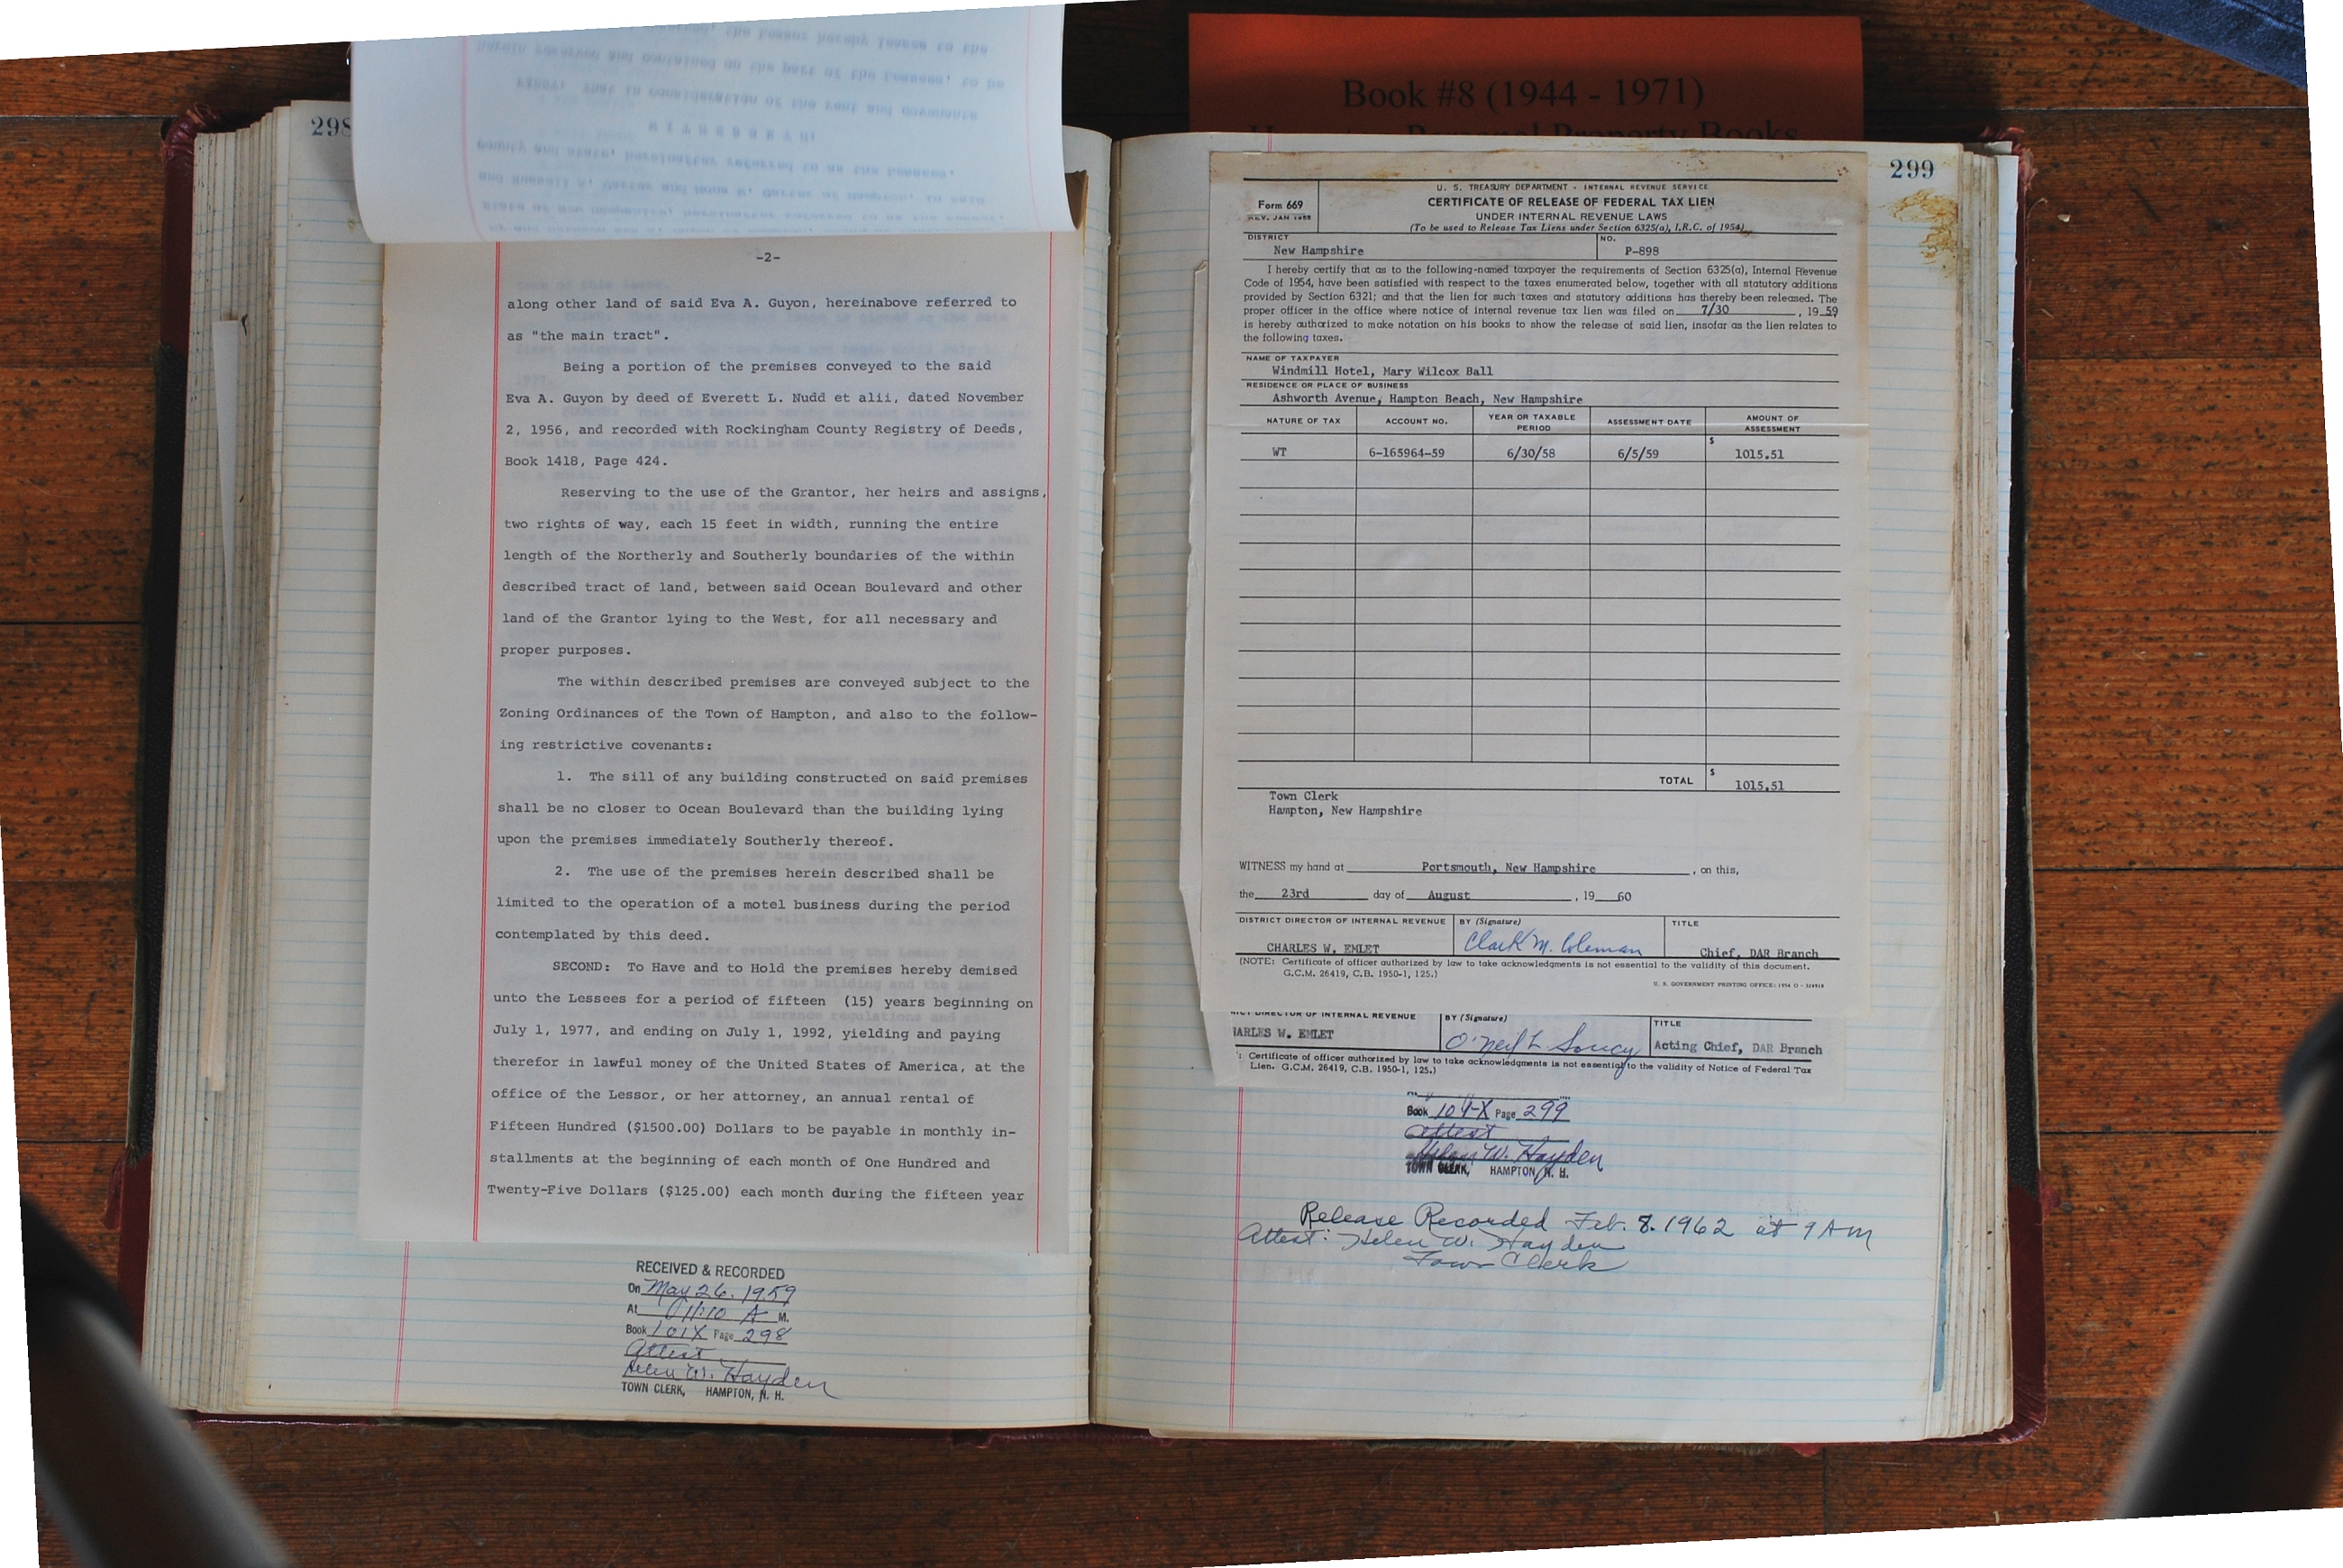 Book #8 (1944 - 1971)
Personal Property Books
298
-2-
along other land of said Eva A. Guyon, hereinabove referred to
as "the main tract".
Being a portion of the premises conveyed to the said
Eva A. Guyon by deed of Everett L. Nudd et alii, dated November
2, 1956, and recorded with Rockingham County Registry of Deeds,
Book 1418, Page 424.
Reserving to the use of the Grantor, her heirs and assigns,
two rights of way, each 15 feet in width, running the entire
length of the Northerly and Southerly boundaries of the within
described tract of land, between said Ocean Boulevard and other
land of the Grantor lying to the West, for all necessary and
proper purposes.
The within described premises are conveyed subject to the
Zoning Ordinances of the Town of Hampton, and also to the follow-
ing restrictive covenants:
1. The sill of any building constructed on said premises
shall be no closer to Ocean Boulevard than the building lying
upon the premises immediately Southerly thereof.
2. The use of the premises herein described shall be
limited to the operation of a motel business during the period
contemplated by this deed.
SECOND: To Have and to Hold the premises hereby demised
unto the Lessees for a period of fifteen (15) years beginning on
July 1, 1977, and ending on July 1, 1992, yielding and paying
therefor in lawful money of the United States of America, at the
office of the Lessor, or her attorney, an annual rental of
Fifteen Hundred ($1500.00) Dollars to be payable in monthly in-
stallments at the beginning of each month of One Hundred and
Twenty-Five Dollars ($125.00) each month during the fifteen year
RECEIVED & RECORDED
On May 26, 1959
At 11:10 A M.
Book 101X Page 298
Attest
Helen W. Hayden
TOWN CLERK, HAMPTON, N. H.
299
Form 669
REV. JAN 1955
U. S. TREASURY DEPARTMENT - INTERNAL REVENUE SERVICE
CERTIFICATE OF RELEASE OF FEDERAL TAX LIEN
UNDER INTERNAL REVENUE LAWS
(To be used to Release Tax Liens under Section 6325(a), I.R.C. of 1954)
DISTRICT NO.
New Hampshire P-898
I hereby certify that as to the following-named taxpayer the requirements of Section 6325(a), Internal Revenue
Code of 1954, have been satisfied with respect to the taxes enumerated below, together with all statutory additions
provided by Section 6321; and that the lien for such taxes and statutory additions has thereby been released. The
proper officer in the office where notice of internal revenue tax lien was filed on 7/30, 19 59
is hereby authorized to make notation on his books to show the release of said lien, insofar as the lien relates to
the following taxes.
NAME OF TAXPAYER
Windmill Hotel, Mary Wilcox Ball
RESIDENCE OR PLACE OF BUSINESS
Ashworth Avenue, Hampton Beach, New Hampshire
NATURE OF TAX ACCOUNT NO. YEAR OR TAXABLE PERIOD ASSESSMENT DATE AMOUNT OF ASSESSMENT
WT 6-165964-59 6/30/58 6/5/59 $ 1015.51
TOTAL $ 1015.51
Town Clerk
Hampton, New Hampshire
WITNESS my hand at Portsmouth, New Hampshire, on this,
the 23rd day of August, 19 60
DISTRICT DIRECTOR OF INTERNAL REVENUE BY (Signature) TITLE
CHARLES W. EMLET Clark M. Coleman Chief, DAR Branch
(NOTE: Certificate of officer authorized by law to take acknowledgments is not essential to the validity of this document.
G.C.M. 26419, C.B. 1950-1, 125.)
U. S. GOVERNMENT PRINTING OFFICE: 1954 O -
DIRECTOR OF INTERNAL REVENUE BY (Signature) TITLE
ARLES W. EMLET O'Neil L Soucy Acting Chief, DAR Branch
: Certificate of officer authorized by law to take acknowledgments is not essential to the validity of Notice of Federal Tax
Lien. G.C.M. 26419, C.B. 1950-1, 125.)
Book 101-X Page 299
Attest
Helen W. Hayden
TOWN CLERK, HAMPTON, N. H.
Release Recorded Feb. 8. 1962 at 9 AM
Attest: Helen W. Hayden
Town Clerk